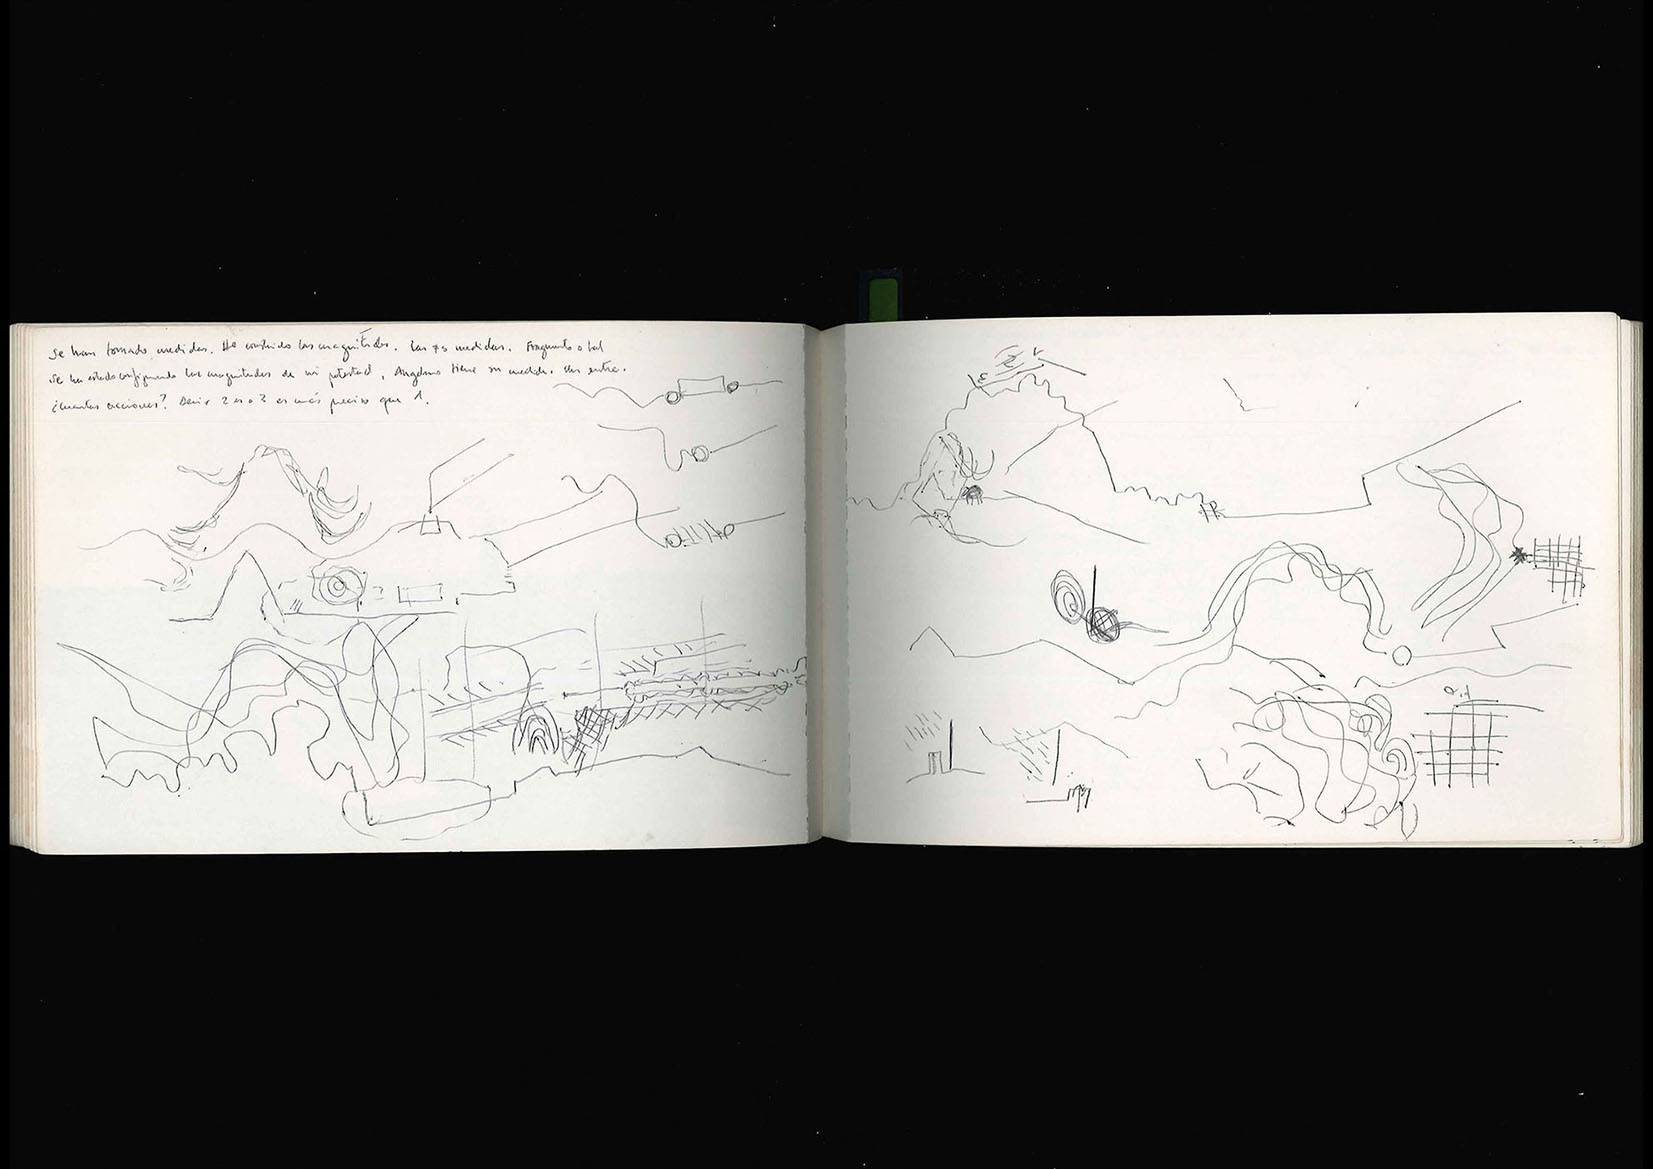 Se han tomado medidas. He construido las magnitudes. Las 75 medidas. Fragmento o tal
Se ha estado configurando las magnitudes de mi potestad, Anselmo tiene su medida. Un entre.
¿Cuántas acciones? Decir 2 es o 3 es más preciso que 1.